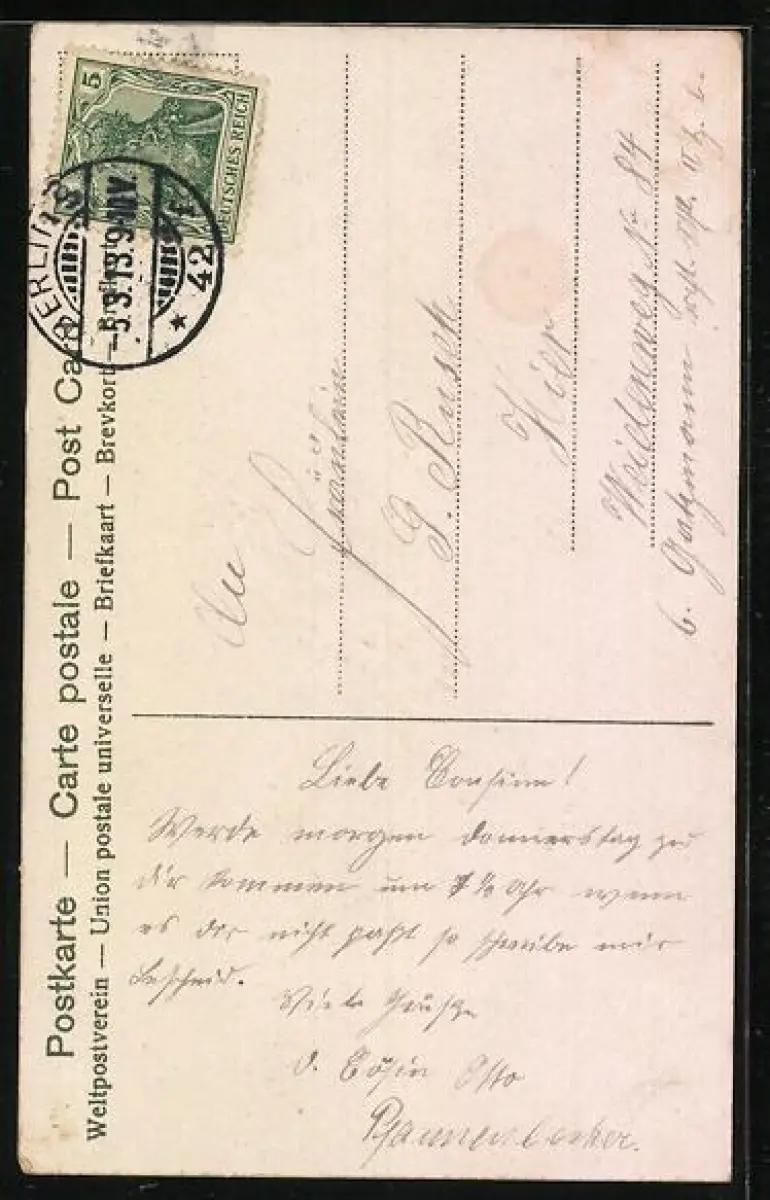 Postkarte — Carte postale — Post Card
Weltpostverein — Union postale universelle — Briefkaart — Brevkort —
5
DEUTSCHES REICH
BERLIN
5.3.13. 9-10 V.
* 42
An
Fräulein
G. Rusch
Hier
Weidenweg No 84
b. Gutzmann
Liebe Cousine!
Werde morgen Donnerstag zu
dir kommen um 7½ Uhr wenn
es dir nicht paßt so schreibe mir
Bescheid.
Viele Grüße
d. Cousin Otto
Pfannenbecker.